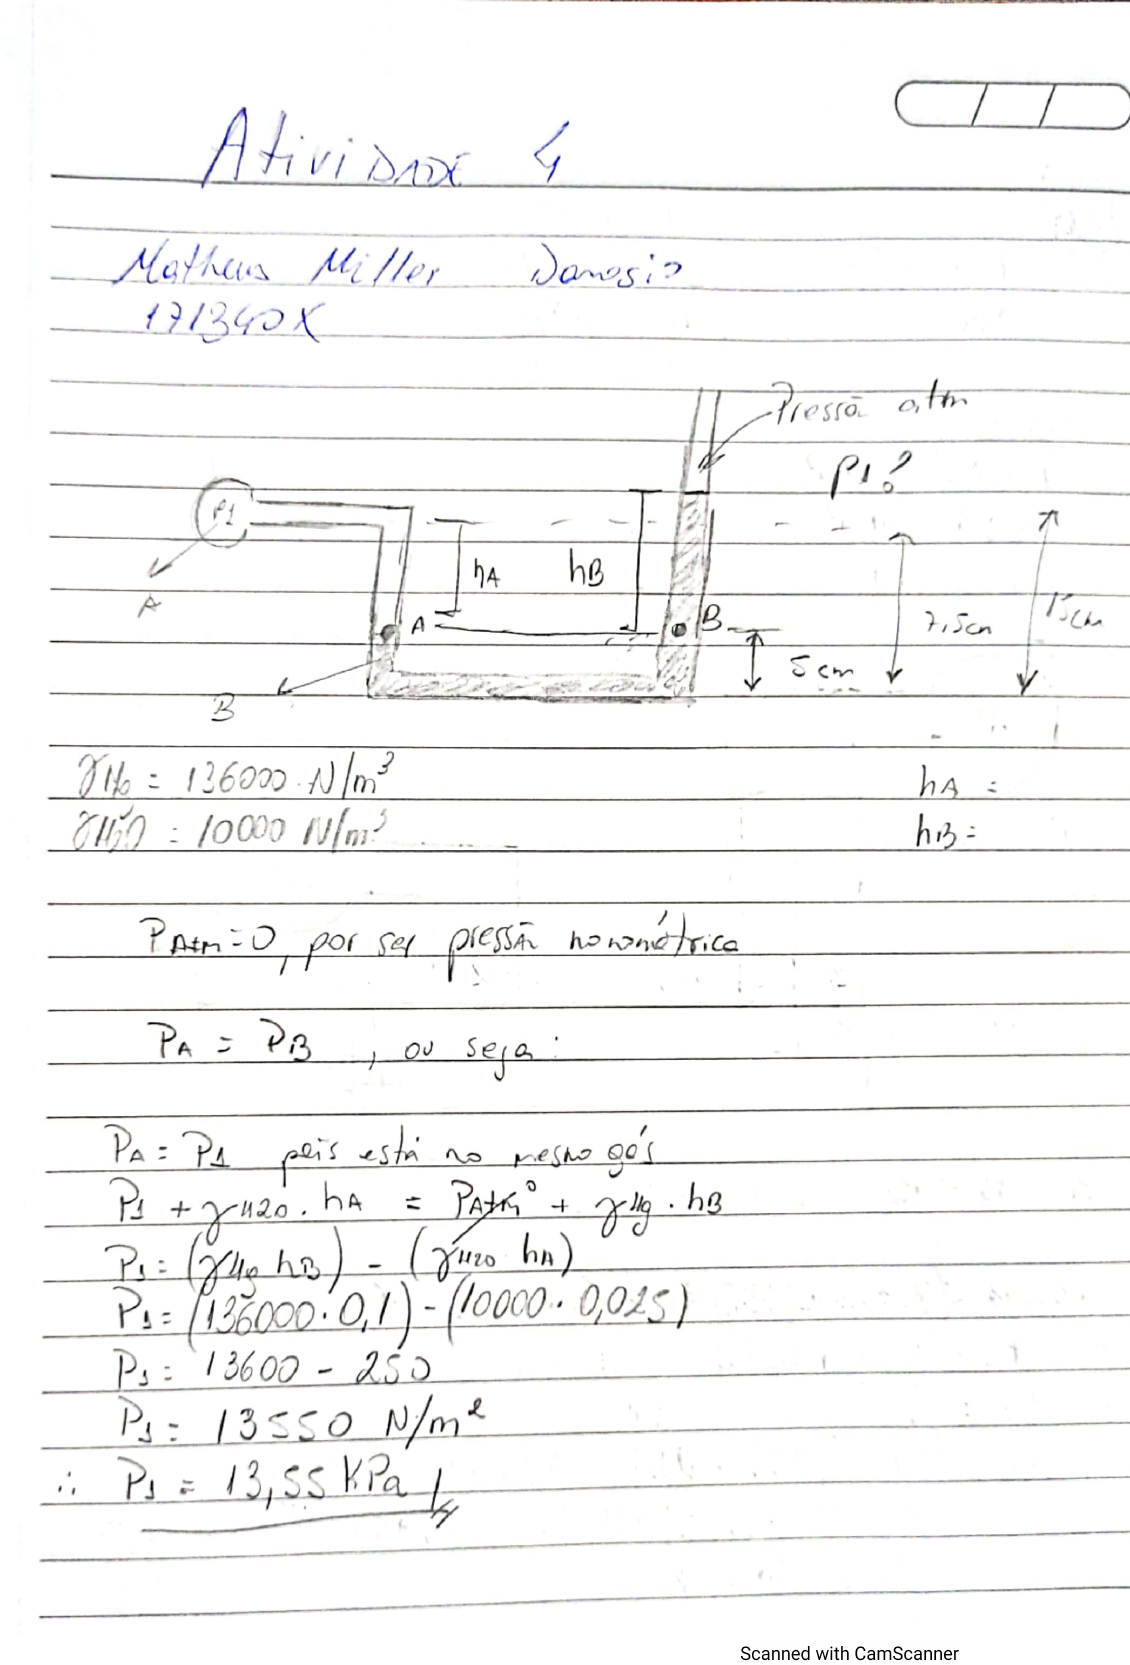 Atividade 4
Matheus Miller
171340X
Pressão atm
P1?
P1
A
hA
hB
A
B
7,5cm
15cm
5cm
B
γHg = 136000 N/m³
hA =
γH2O = 10000 N/m³
hB =
PAtm = 0, por ser pressão nonométrica
PA = PB , ou seja:
PA = P1 pois está no mesmo gás
P1 + γH2O . hA = PAtm⁰ + γHg . hB
P1 = (γHg hB) - (γH2O hA)
P1 = (136000 . 0,1) - (10000 . 0,025)
P1 = 13600 - 250
P1 = 13550 N/m²
∴ P1 = 13,55 KPa
Scanned with CamScanner